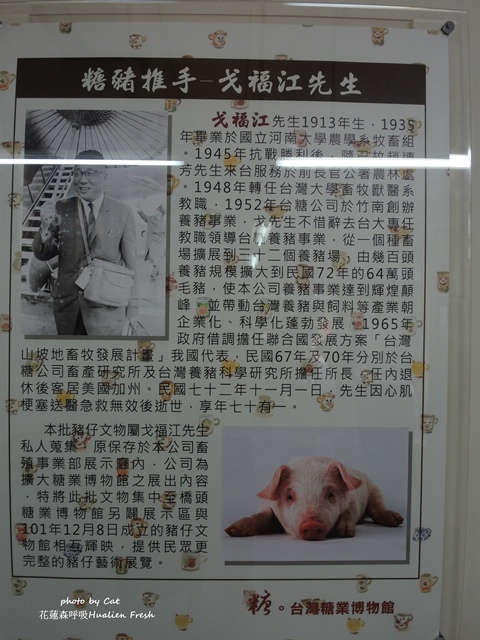 糖豬推手-戈福江先生
戈福江先生1913年生，1935
年畢業於國立河南大學農學系牧畜組
。1945年抗戰勝利後，隨
芳先生來台服務於前長官公署農林處
。1948年轉任台灣大學畜牧獸醫系
教職，1952年台糖公司於竹南創辦
養豬事業，戈先生不惜辭去台大專任
教職領導台糖養豬事業，從一個種畜
場擴展到三十二個養豬場，由幾百頭
養豬規模擴大到民國72年的64萬頭
毛豬，使本公司養豬事業達到輝煌顛
峰，並帶動台灣養豬與飼料等產業朝
企業化、科學化蓬勃發展。1965年
政府借調擔任聯合國發展方案「台灣
山坡地畜牧發展計畫」我國代表，民國67年及70年分別於台
糖公司畜產研究所及台灣養豬科學研究所擔任所長。任內退
休後客居美國加州。民國七十二年十一月一日，先生因心肌
梗塞送醫急救無效後逝世，享年七十有一。
本批豬仔文物屬戈福江先生
私人蒐集，原保存於本公司畜
殖事業部展示廳內，公司為
擴大糖業博物館之展出內容
，特將此批文物集中至橋頭
糖業博物館另闢展示區與
101年12月8日成立的豬仔文
物館相互輝映，提供民眾更
完整的豬仔藝術展覽。
糖。台灣糖業博物館
photo by Cat
花蓮森呼吸Hualien Fresh